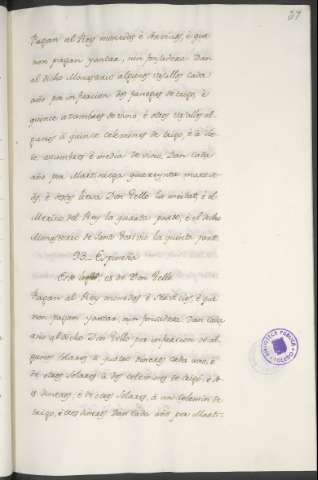 37
Pagan al Rey monedas è servicios, è que
non pagan yantar, nin fonsadera. Dan
al dicho Monasterio algunos vasallos cada
año por infurcion dos fanegas de trigo, è
quince azumbres de vino, è otros vasallos al-
gunos à quince celemines de trigo, è à sie-
te azumbres è media de vino. Dan cada
año por Martiniega quarenta marave-
dis, è destos lieva Don Tello la meitad, è el
Merino del Rey la quarta parte, è el dicho
Monasterio de Sant la quinta parte.
93_ Espinosa
Este logar es de Don Tello
Pagan al Rey monedas è servicios, è que
non pagan yantar, nin fonsadera. Dan cada
año al dicho Don Tello por infurcion de al-
gunos solares à dineros cada uno, è
de otros solares à dos celemines de trigo, è
dineros; è de otros solares, à un celemin de
trigo, è tres dineros. Dan cada año por Marti-
BIBLIOTECA PUBLICA
TOLEDO